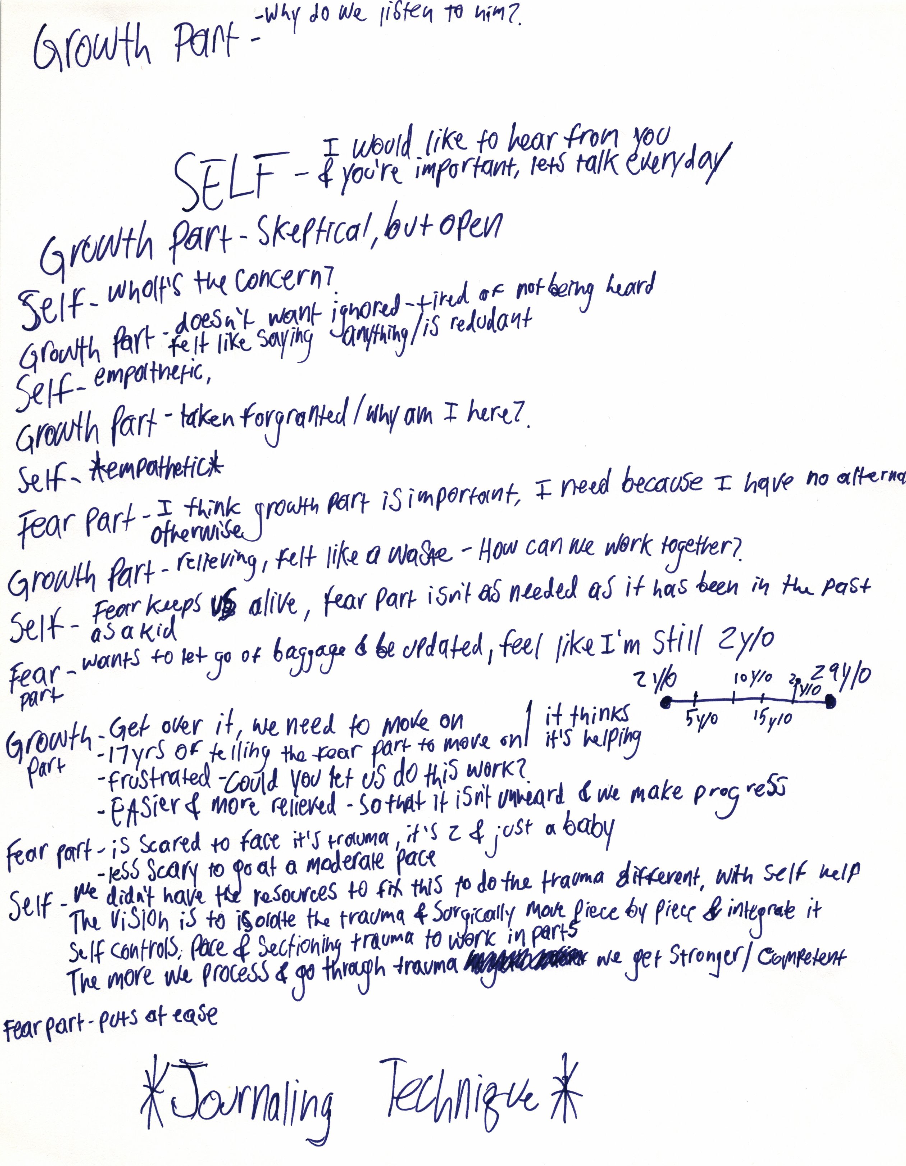 Growth Part - -Why do we listen to him?
SELF - I would like to hear from you
& you're important, lets talk everyday
Growth Part - Skeptical, but open
Self - what's the concern?
Growth Part - doesn't want ignored - tired of not being heard
felt like saying anything/is redudant
Self - empathetic,
Growth Part - taken forgranted / why am I here?
Self - *empathetic*
Fear Part - I think growth part is important, I need because I have no alterna
otherwise
Growth Part - relieving, felt like a waste - How can we work together?
Self - Fear keeps us alive, fear part isn't as needed as it has been in the past
as a kid
Fear part - wants to let go of baggage & be updated, feel like I'm still 2 y/o
2 y/o 5 y/o 10 y/o 15 y/o 20 y/o 29 y/o
Growth Part - Get over it, we need to move on
-17yrs of telling the fear part to move on / it thinks it's helping
-frustrated - Could you let us do this work?
-EASier & more relieved - so that it isn't unheard & we make progress
Fear part - is scared to face it's trauma, it's 2 & just a baby
-less scary to go at a moderate pace
Self - We didn't have the resources to fix this to do the trauma different, with self help
The vision is to isolate the trauma & Surgically move piece by piece & integrate it
Self controls, pace & sectioning trauma to work in parts
The more we process & go through trauma we get stronger / Competent
Fear part - puts at ease
*Journaling Technique*